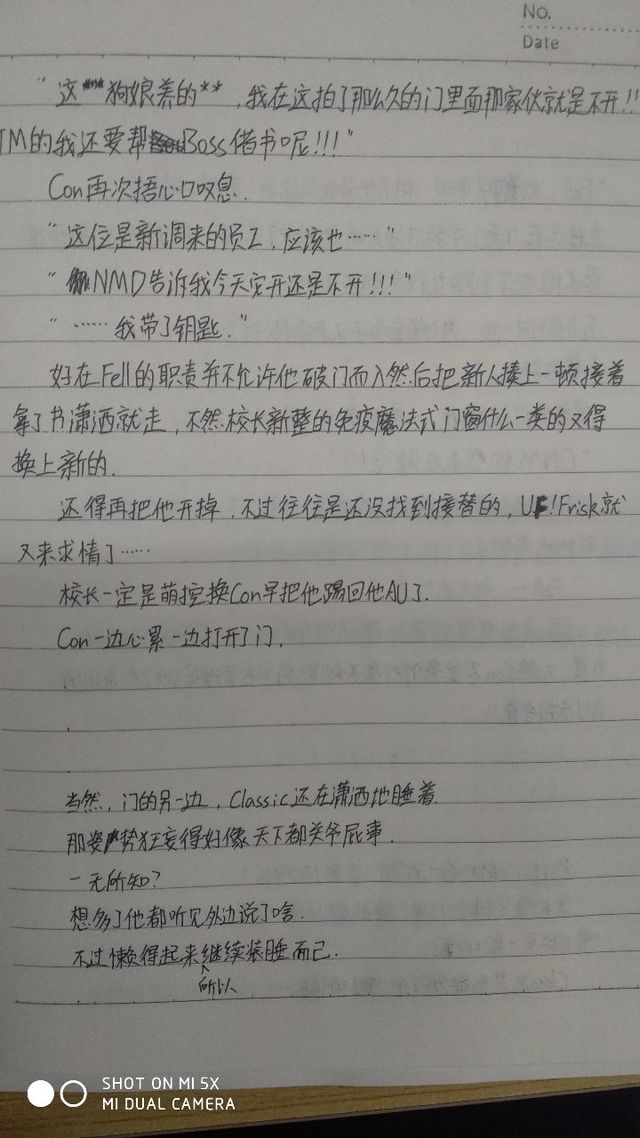 No.
Date
"这***狗娘养的**，我在这拍了那么久的门里面那家伙就是不开!!
TM的我还要帮Boss借书呢!!!"
Con再次捂心口叹息.
"这位是新调来的员工，应该也……"
"NMD告诉我今天它开还是不开!!!"
"……我带了钥匙."
好在Fell的职责并不允许他破门而入然后把新人揍上一顿接着
拿了书潇洒就走，不然校长新整的免疫魔法式门窗什么一类的又得
换上新的.
还得再把他开掉，不过往往是还没找到接替的，UF!Frisk就
又来求情了……
校长一定是萌控换Con早把他踢回他AU了.
Con一边心累一边打开了门.
当然，门的另一边，Classic还在潇洒地睡着.
那姿势狂妄得好像天下都关爷屁事.
一无所知?
想多了他都听见外边说了啥.
不过懒得起来所以继续装睡而已.
SHOT ON MI 5X
MI DUAL CAMERA